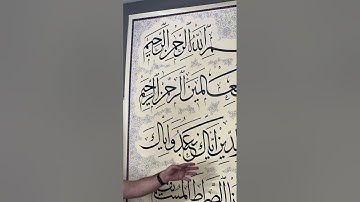 ـم الله الرحمن الرحيم
لعالمين الرحمن الرحيم
لدين إياك نعبد وإياك
نا الصراط المستقيم